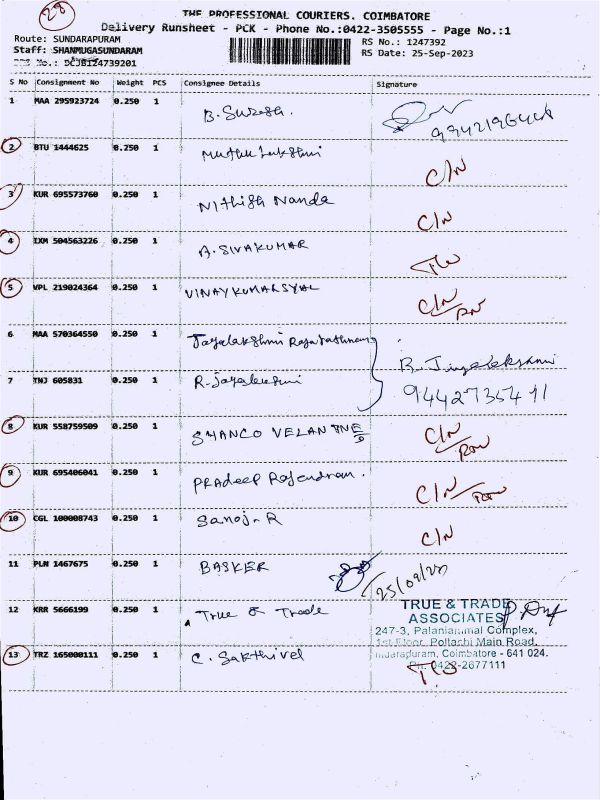 28
THE PROFESSIONAL COURIERS. COIMBATORE
Delivery Runsheet - PCK - Phone No.:0422-3505555 - Page No.:1
Route: SUNDARAPURAM
RS No.: 1247392
Staff: SHANMUGASUNDARAM
RS Date: 25-Sep-2023
No.: DCJB124739201
S No Consignment No Weight PCS Consignee Details Signature
1 MAA 295923724 0.250 1 B. Suresh.
2 BTU 1444625 0.250 1 Muthu Lakshmi C/N
3 KUR 695573760 0.250 1 Nithish Nanda C/N
4 IXM 504563226 0.250 1 A. SIVAKUMAR
5 VPL 219024364 0.250 1 VINAYKUMARSYAL C/N
6 MAA 570364550 0.250 1 Jayalakshmi
R. Jayalakshmi
7 TNJ 605831 0.250 1 R. Jayalakshmi 9442735411
8 KUR 558759509 0.250 1 SHANCO VELAN C/N
9 KUR 695406041 0.250 1 Pradeep Rajendran. C/N
10 CGL 100008743 0.250 1 Sanoj-R C/N
11 PLN 1467675 0.250 1 BASKER 25/09/23
12 KRR 5666199 0.250 1 True & Trade
TRUE & TRADE
ASSOCIATES
247-3, Palaniammal Complex,
1st Floor, Pollachi Main Road,
Sundarapuram, Coimbatore - 641 024.
Ph: 0422-2677111
13 TRZ 165000111 0.250 1 C. Sakthivel